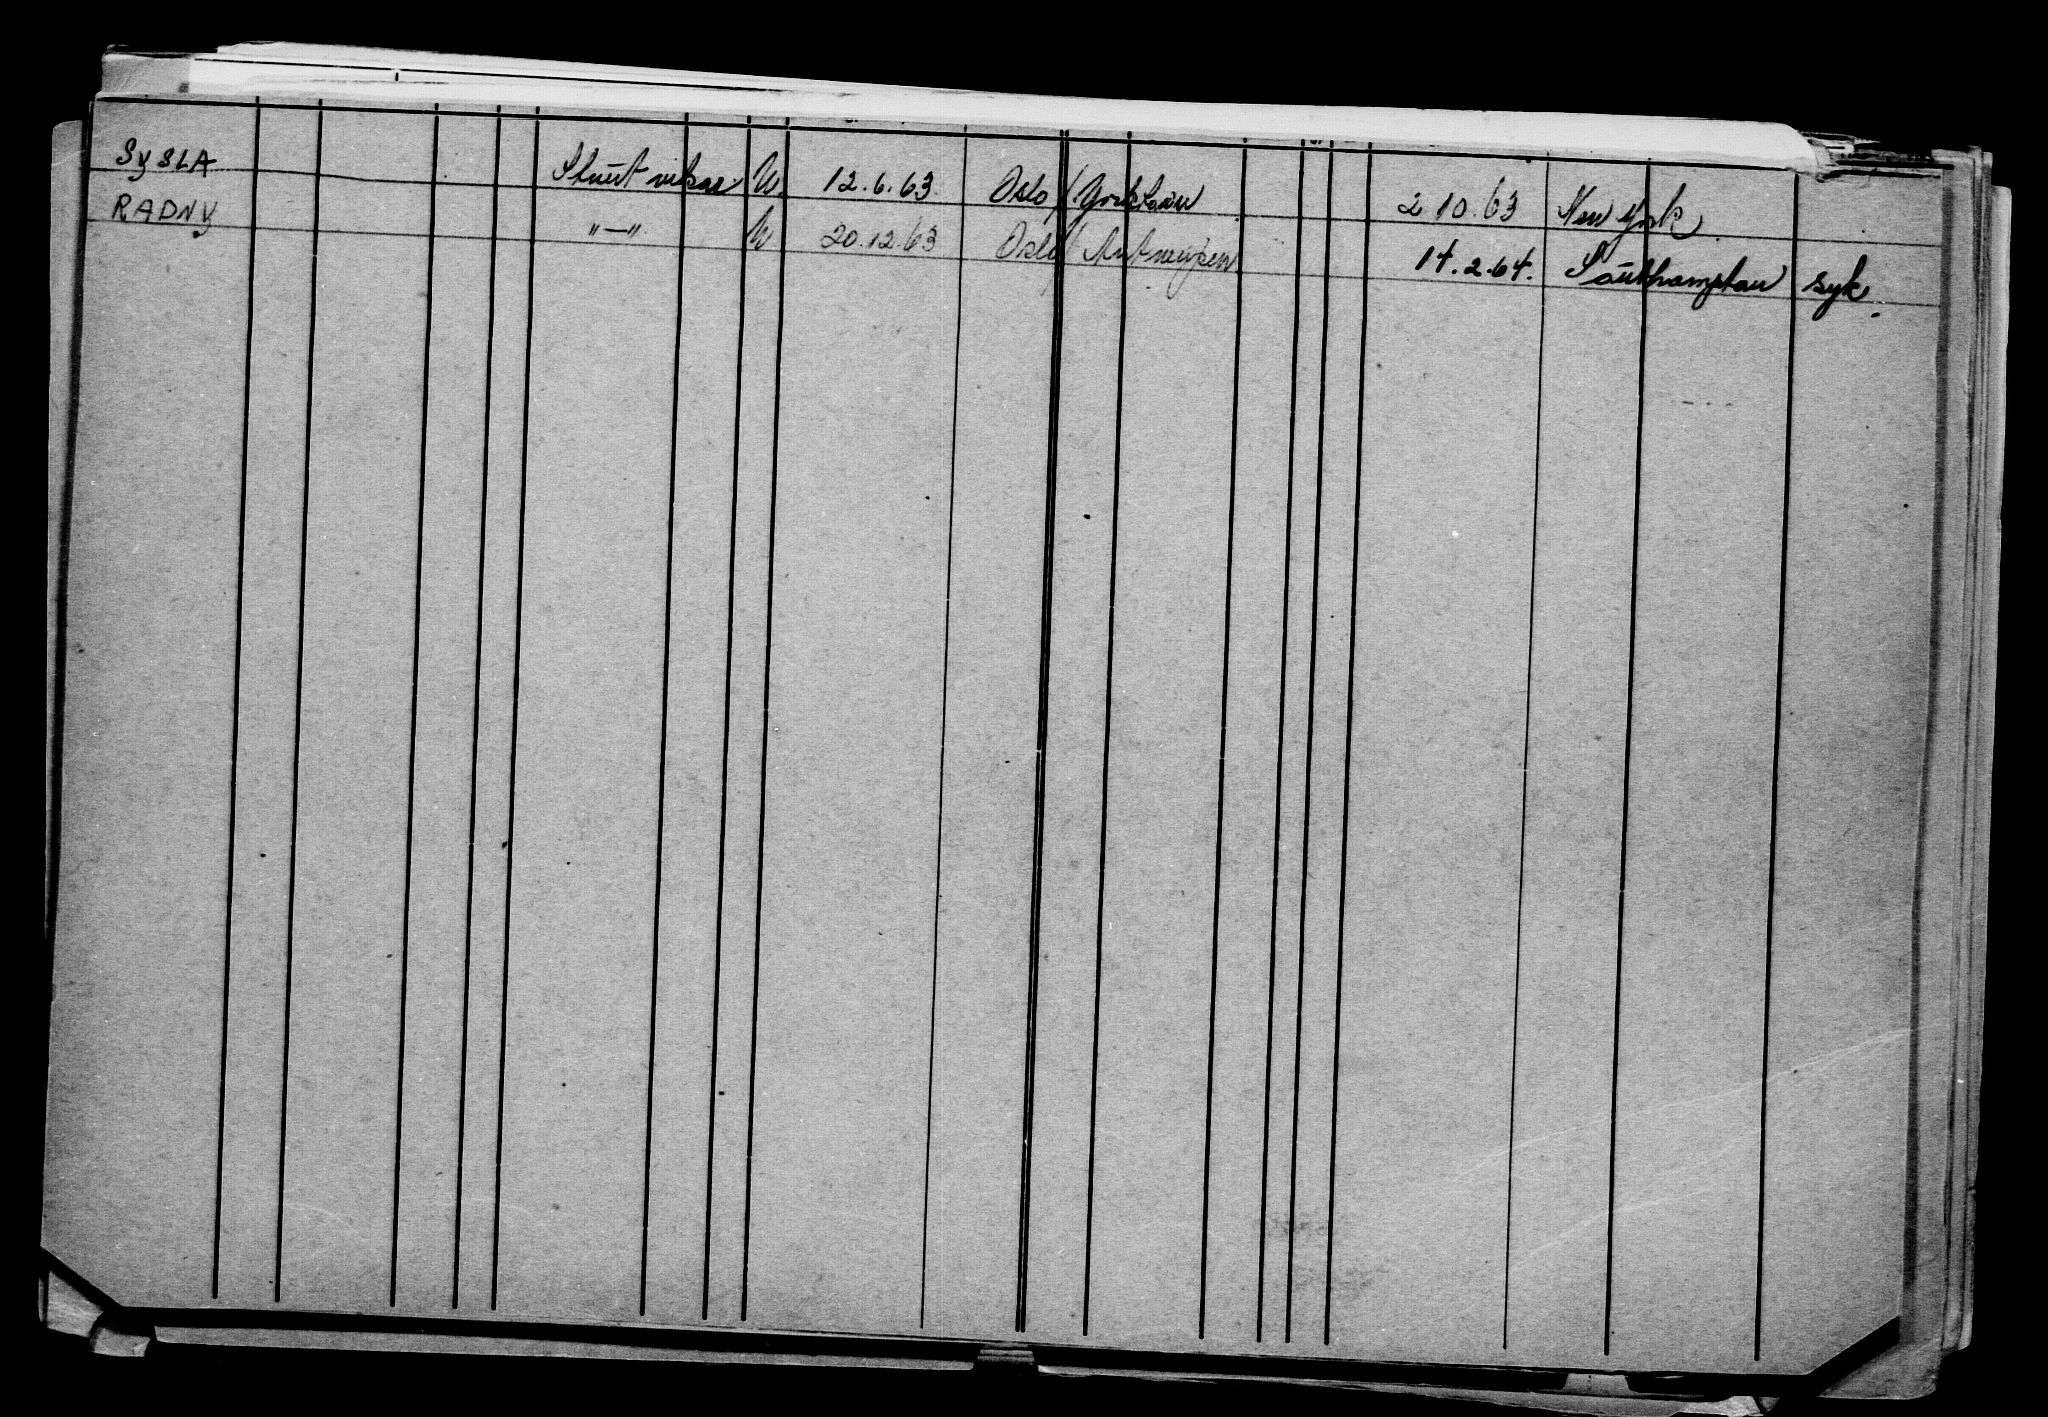 SYSLA Stuert vikar U 12.6.63 Oslo / Yorktown 2 10.63 New York
RADNY "—" U 20.12.63 Oslo / Antwerpen 14.2.64. Southampton syk.